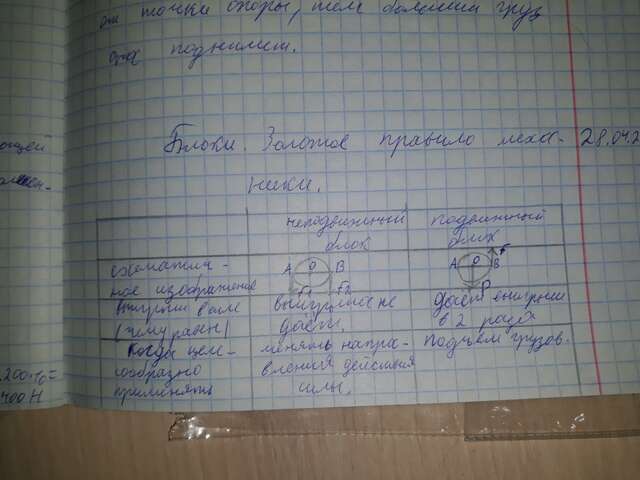 от точки опоры, тем больший груз
она поднимет.
Блоки. Золотое правило меха-
28.04.2
ники.
неподвижный блок
подвижный блок
схематич-
ное изображение
A O B
F1 F2
A O B
F
P
выигрыш в силе
(чему равен)
выигрыша не
даёт.
даёт выигрыш
в 2 раза
Когда целе-
сообразно
применять
менять напра-
вления действия
силы.
подъём грузов.
ющей
200·10=
400 Н